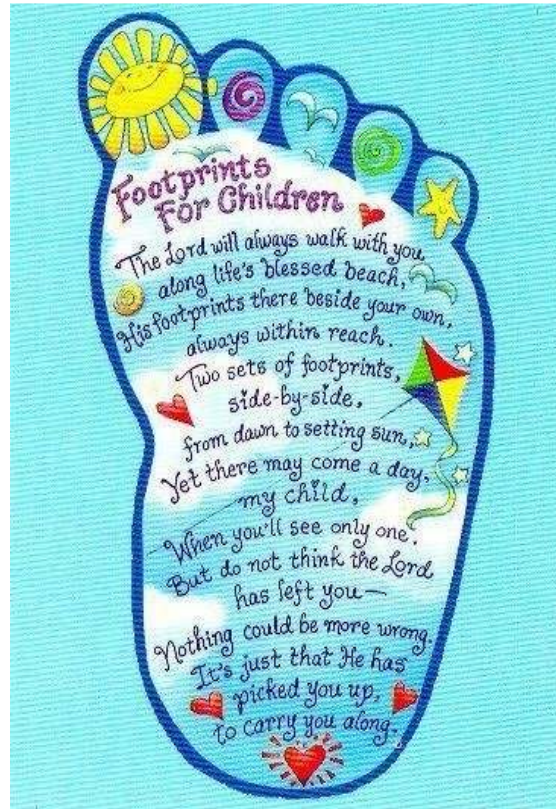 Footprints
For Children
The Lord will always walk with you
along life's blessed beach,
His footprints there beside your own,
always within reach.
Two sets of footprints,
side-by-side,
from dawn to setting sun,
Yet there may come a day,
my child,
When you'll see only one.
But do not think the Lord
has left you—
Nothing could be more wrong.
It's just that He has
picked you up,
to carry you along.